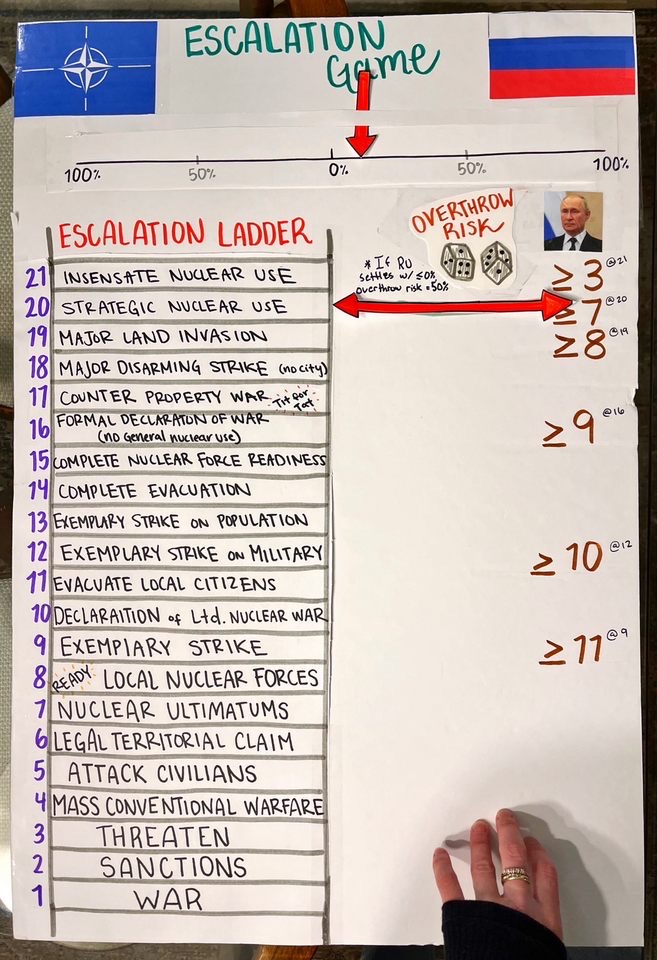 ESCALATION
Game
100% 50% 0% 50% 100%
ESCALATION LADDER
OVERTHROW
RISK
* If RU
settles w/ ≤0%
overthrow risk = 50%
21 INSENSATE NUCLEAR USE
≥3 @21
20 STRATEGIC NUCLEAR USE
≥7 @20
19 MAJOR LAND INVASION
≥8 @19
18 MAJOR DISARMING STRIKE (no city)
17 COUNTER PROPERTY WAR Tit for Tat
16 FORMAL DECLARATON OF WAR
(no General nuclear use)
≥9 @16
15 COMPLETE NUCLEAR FORCE READINESS
14 COMPLETE EVACUATION
13 EXEMPLARY STRIKE ON POPULATION
12 EXEMPLARY STRIKE ON MILITARY
≥10 @12
11 EVACUATE LOCAL CITIZENS
10 DECLARAITION of Ltd. NUCLEAR WAR
9 EXEMPIARY STRIKE
≥11 @9
8 READY LOCAL NUCLEAR FORCES
7 NUCLEAR ULTIMATUMS
6 LEGAL TERRITORIAL CLAIM
5 ATTACK CIVILIANS
4 MASS CONVENTIONAL WARFARE
3 THREATEN
2 SANCTIONS
1 WAR